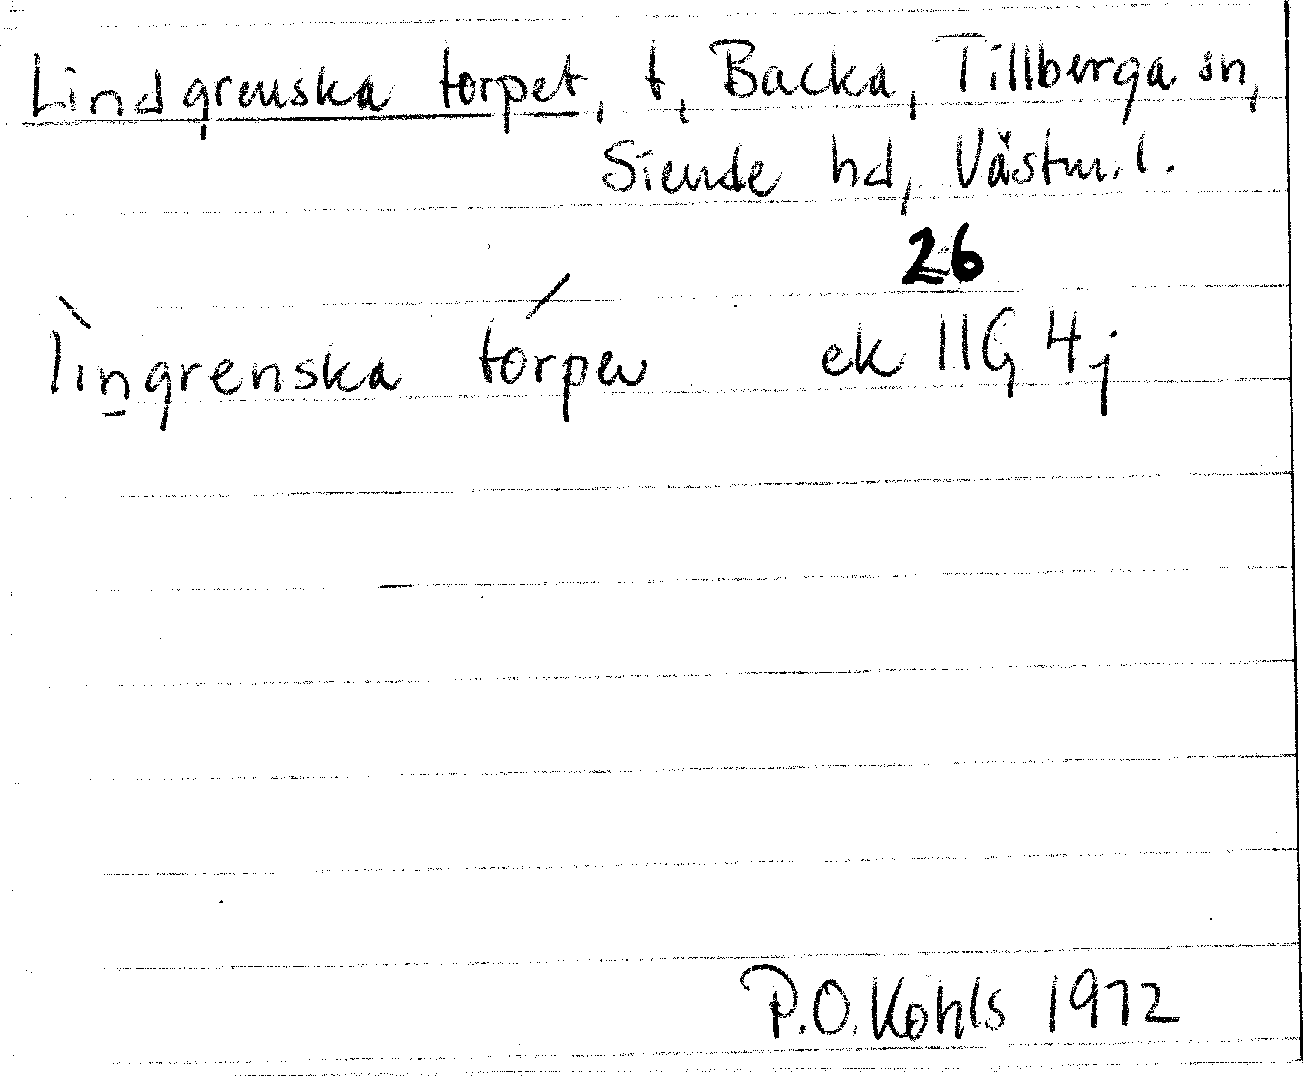 Lindgrenska torpet, t, Backa, Tillberga sn,
Siende hd, Västm. l.
26
lìngrenska tórpeu ek 11G 4j
P.O. Kohls 1972